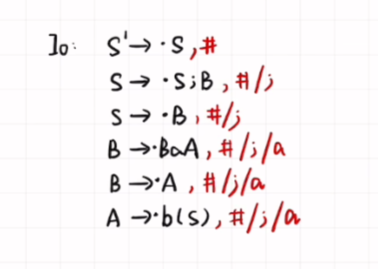 I₀: S'→·S,#
S→·S;B,#/;
S→·B,#/;
B→·BaA,#/;/a
B→·A,#/;/a
A→·b(S),#/;/a